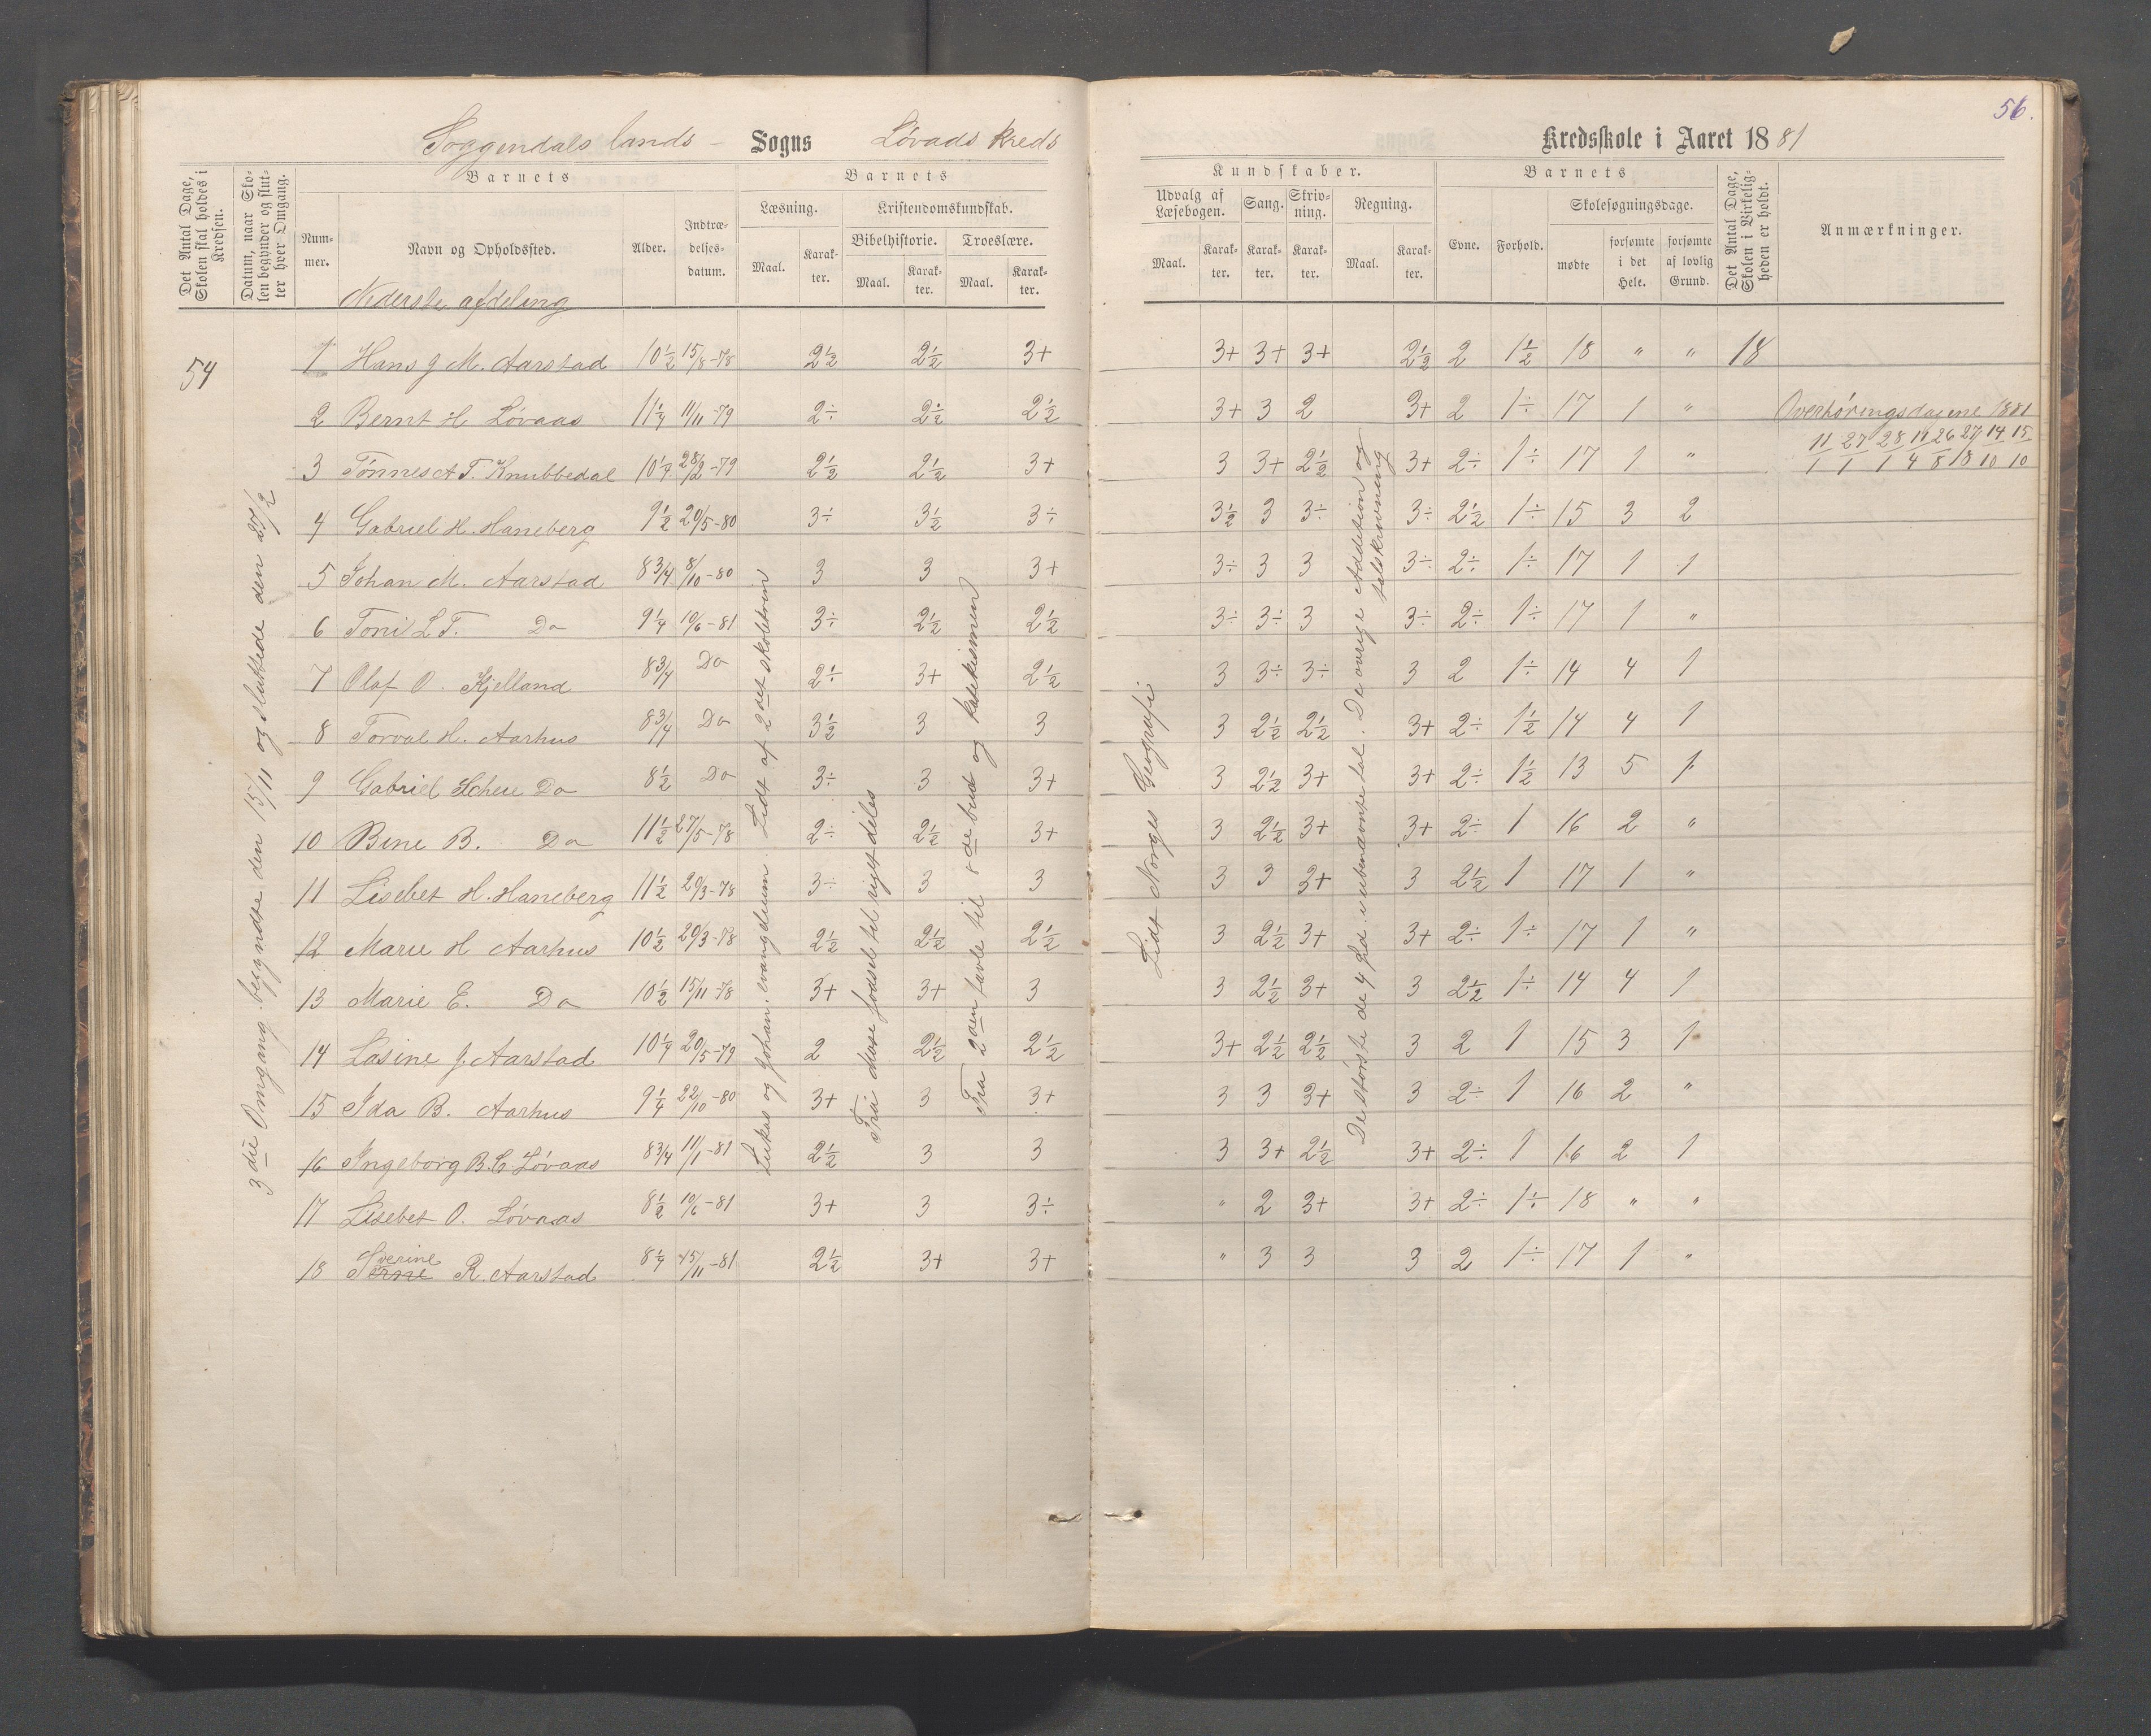 56.
Soggendals lands - Sogns Løvaas Kreds Kredsskole i Aaret 1881
Det Antal Dage, Skolen skal holdes i Kredsen.
Datum, naar Skolen begynder og slutter hver Omgang.
Barnets
Nummer.
Navn og Opholdssted.
Alder.
Indtrædelsesdatum.
Barnets
Læsning.
Maal.
Karakter.
Kristendomskundskab.
Bibelhistorie.
Maal.
Karakter.
Troeslære.
Maal.
Karakter.
Kundskaber.
Udvalg af Læsebogen.
Maal.
Karakter.
Sang.
Karakter.
Skrivning.
Karakter.
Regning.
Maal.
Karakter.
Barnets
Evne.
Forhold.
Skolesøgningsdage.
mødte
forsømte i det Hele.
forsømte af lovlig Grund.
Det Antal Dage, Skolen i Virkeligheden er holdt.
Anmærkninger.
Nederste afdeling
54
3die Omgang begyndte den 15/11 og sluttede den 27/2
Lukas og Johan. evangelium. Lidt af 2det skoletrin
Fra Mose fødsel til riget deles
Fra 2den tavle til 8de bud og katekismen
Lidt Norges Geografi
De største de 4 sid. i ubenævnte tal. De øvrige Addition og
talskrivning
1 Hans J M. Aarstad 10 1/2 15/8-78 2 1/2 2 1/2 3+ 3+ 3+ 3+ 2 1/2 2 1 1/2 18 " " 18
2 Bernt H Løvaas 11 1/4 11/11-79 2÷ 2 1/2 2 1/2 3+ 3 2 3+ 2 1÷ 17 1 " Overhøringsdagene 1881
11/1 27/1 28/1 11/4 26/8 27/18 14/10 15/10
3 Tønnes A T. Knubbedal 10 1/4 28/2-79 2 1/2 2 1/2 3+ 3 3+ 2 1/2 3+ 2÷ 1÷ 17 1 "
4 Gabriel H. Haneberg 9 1/2 20/5-80 3÷ 3 1/2 3÷ 3 1/2 3 3÷ 3÷ 2 1/2 1÷ 15 3 2
5 Johan M. Aarstad 8 3/4 8/10-80 3 3 3+ 3÷ 3 3 3÷ 2÷ 1÷ 17 1 1
6 Toni L T. Do 9 1/4 10/6-81 3÷ 2 1/2 2 1/2 3÷ 3÷ 3 3÷ 2÷ 1÷ 17 1 "
7 Olaf O. Kjelland 8 3/4 Do 2÷ 3+ 2 1/2 3 3÷ 3÷ 3 2 1÷ 14 4 1
8 Torval H. Aarhus 8 3/4 Do 3 1/2 3 3 3 2 1/2 2 1/2 3+ 2÷ 1 1/2 14 4 1
9 Gabriel Scheie Do 8 1/2 Do 3÷ 3 3+ 3 2 1/2 3+ 3+ 2÷ 1 1/2 13 5 1
10 Bine B. Do 11 1/2 27/5-78 2÷ 2 1/2 3+ 3 2 1/2 3+ 3+ 2÷ 1 16 2 "
11 Lisebet H. Haneberg 11 1/2 20/3-78 3÷ 3 3 3 3 3+ 3 2 1/2 1 17 1 "
12 Marie H Aarhus 10 1/2 20/3-78 2 1/2 2 1/2 2 1/2 3 2 1/2 3+ 3+ 2÷ 1÷ 17 1 "
13 Marie E. Do 10 1/2 15/11-78 3+ 3+ 3 3 2 1/2 3+ 3 2 1/2 1÷ 14 4 1
14 Lasine J. Aarstad 10 1/4 20/5-79 2 2 1/2 2 1/2 3+ 2 1/2 2 1/2 3 2 1 15 3 1
15 Ida B. Aarhus 9 1/4 22/10-80 3+ 3 3+ 3 3 3+ 3 2÷ 1 16 2 "
16 Ingeborg B. C. Løvaas 8 3/4 11/1-81 2 1/2 3 3 3 3+ 2 1/2 3+ 2÷ 1 16 2 1
17 Lisebet O. Løvaas 8 1/2 10/6-81 3+ 3 3÷ " 2 3+ 3+ 2÷ 1÷ 18 " "
18 Sverine R. Aarstad 8 1/4 15/11-81 2 1/2 3+ 3+ " 3 3 3 2 1÷ 17 1 "